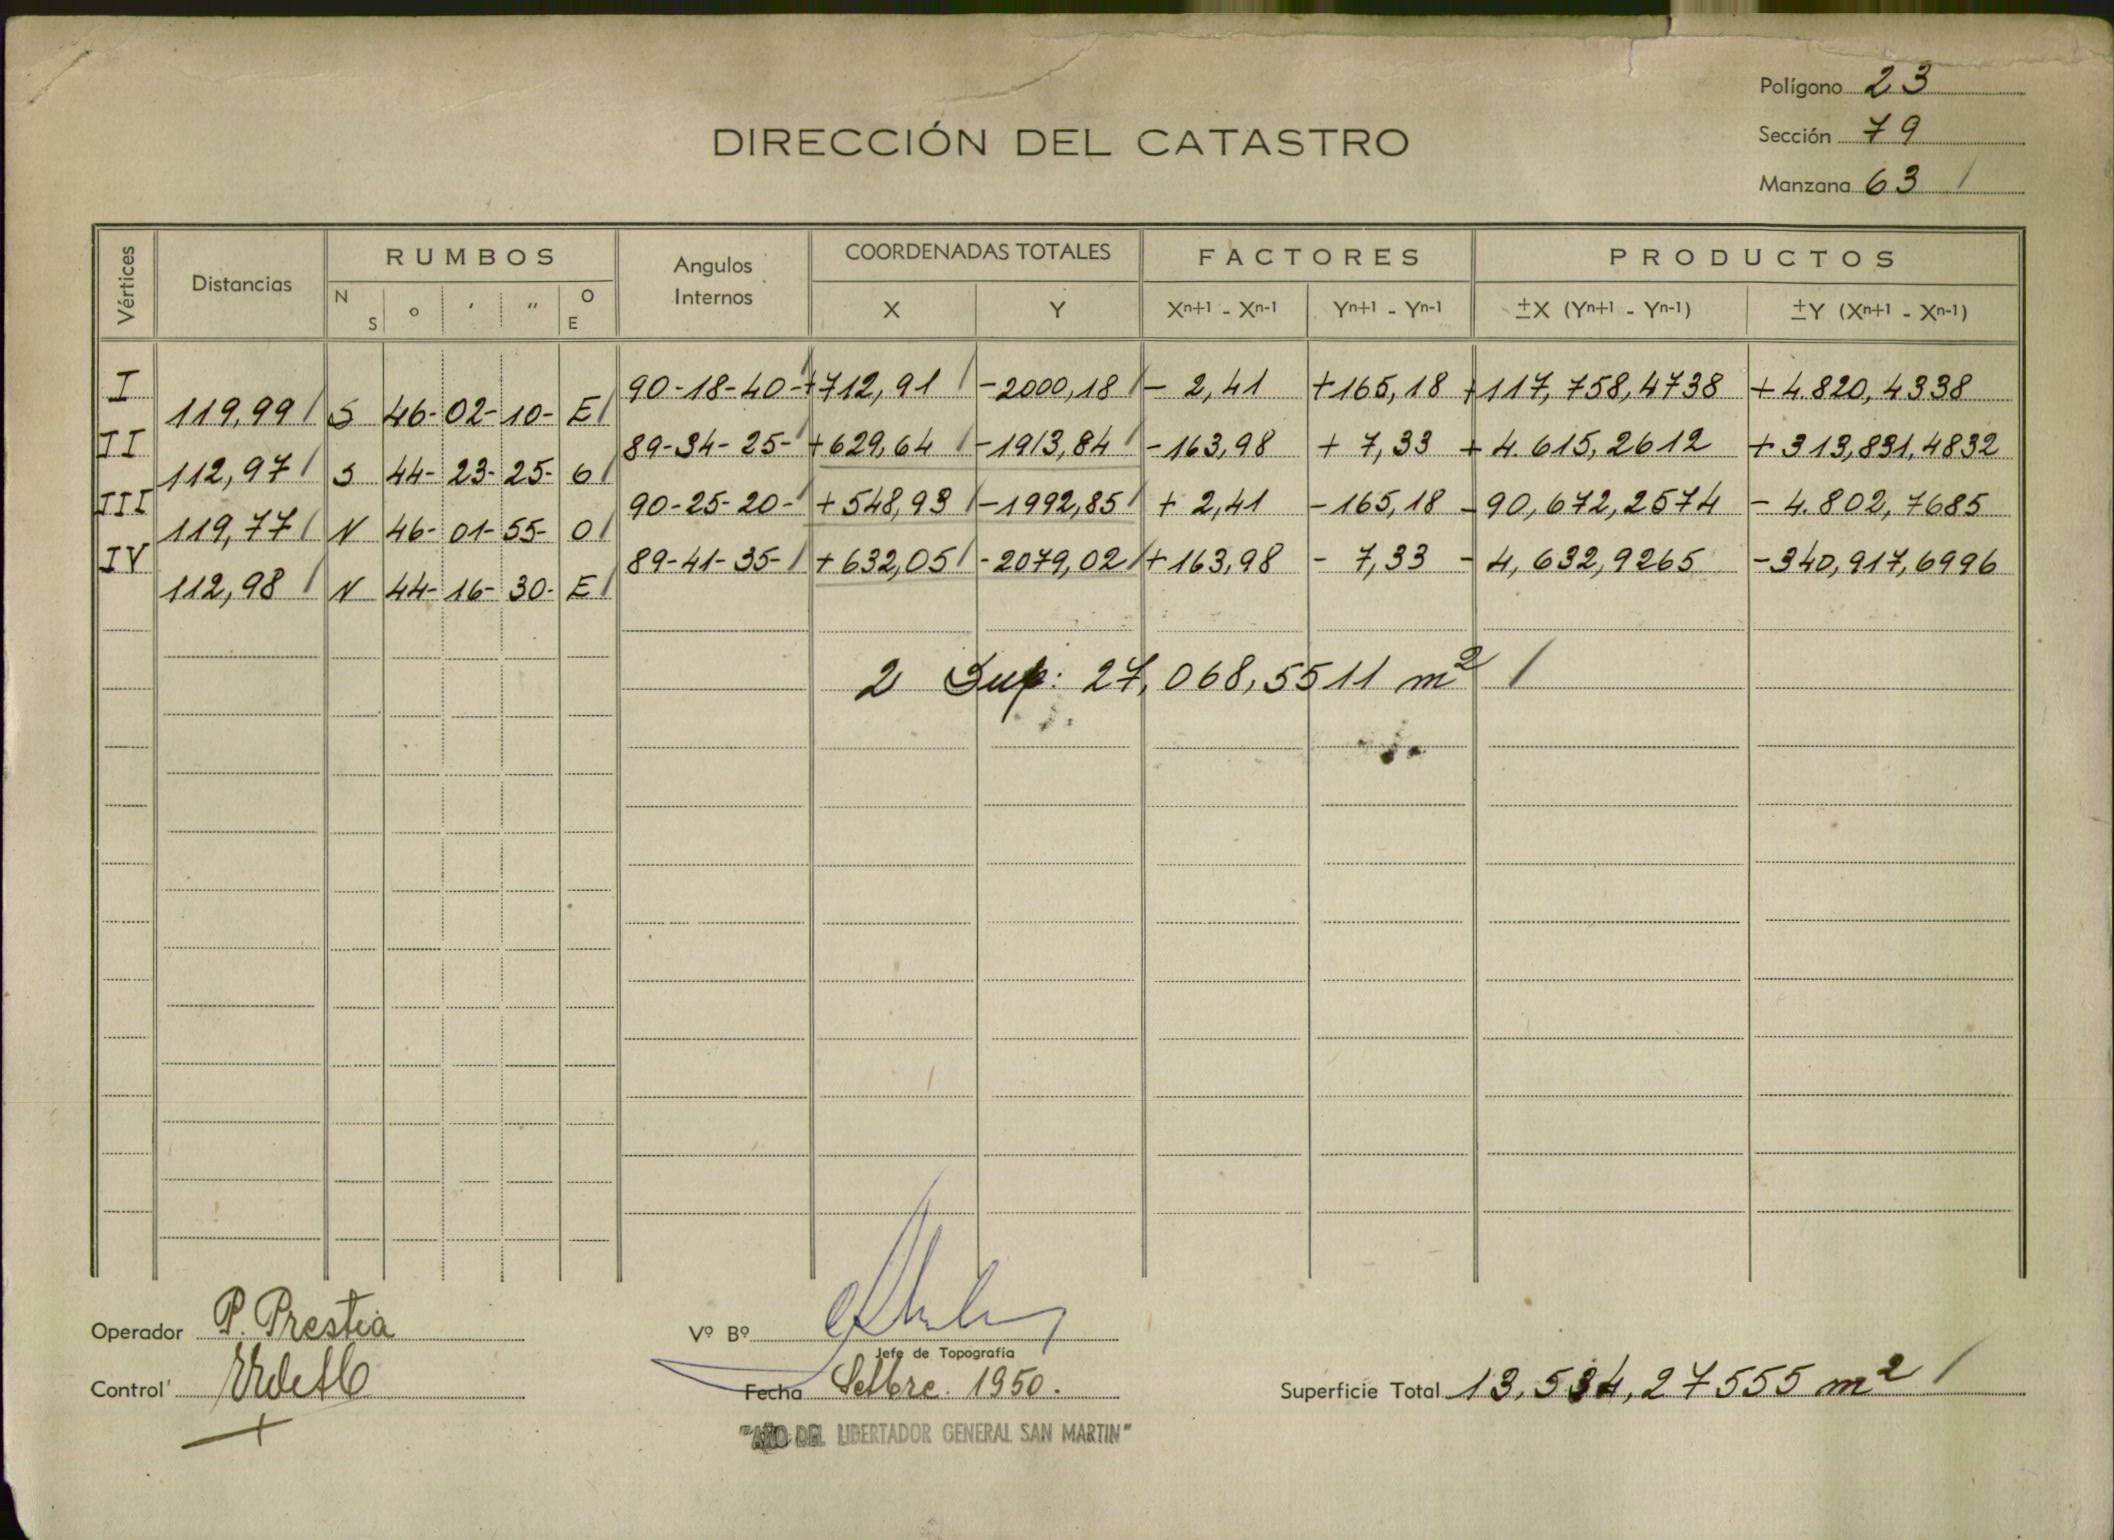 Polígono 23
DIRECCIÓN DEL CATASTRO
Sección 79
Manzana 63 /
Vértices Distancias RUMBOS Angulos Internos COORDENADAS TOTALES FACTORES PRODUCTOS
N S o ' " O E X Y Xn+1 - Xn-1 Yn+1 - Yn-1 ±X (Yn+1 - Yn-1) ±Y (Xn+1 - Xn-1)
I 90-18-40- +712,91 / -2000,18 / - 2,41 +165,18 +117,758,4738 +4.820,4338
119,99 / S 46- 02- 10- E /
II 89-34-25- / +629,64 / -1913,84 / -163,98 + 7,33 + 4.615,2612 +313,831,4832
112,97 / S 44- 23- 25- O /
III 90-25-20- / +548,93 / -1992,85 / + 2,41 -165,18 -90,672,2574 - 4.802,7685
119,77 / N 46- 01- 55- O /
IV 89-41-35- / +632,05 / -2079,02 / +163,98 - 7,33 - 4,632,9265 -340,917,6996
112,98 / N 44- 16- 30- E /
2 Sup: 27,068,5511 m² /
Operador P. Prestia
Vº Bº
Jefe de Topografía
Control
Fecha Setbre. 1950.
Superficie Total 13,534,27555 m² /
"AÑO DEL LIBERTADOR GENERAL SAN MARTIN"